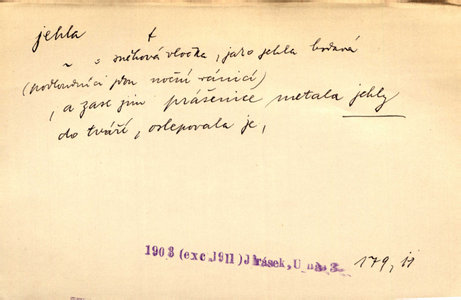 jehla †
~ s sněhová vločka, jako jehla bodavá
(podloudníci jdou noční vánicí)
, a zase jim prášenice metala jehly
do tváří, oslepovala je,
1903 (exc. 1911) Jirásek, U nás 3 179, 11